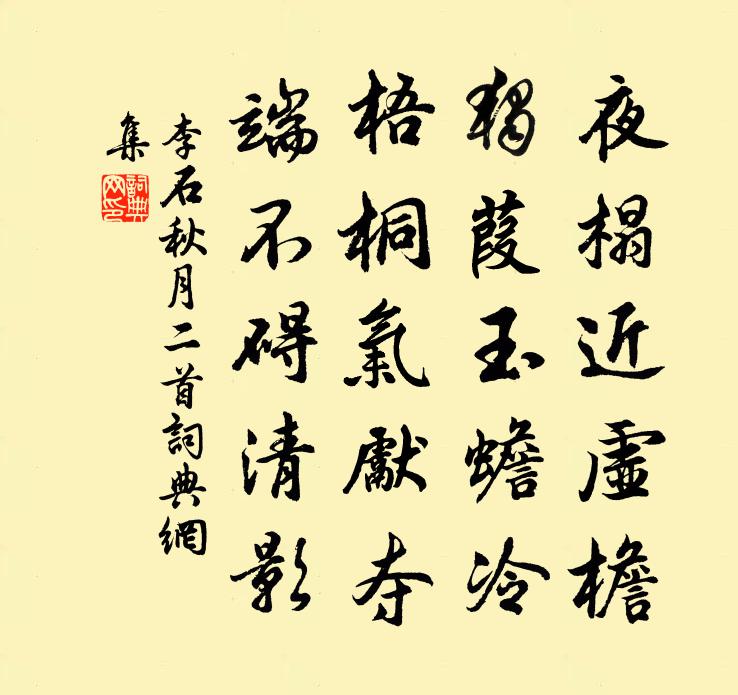 夜榻近虛檐
獨葭玉蟾冷
梧桐氣獻夺
端不碍清影
李石秋月二首詞典網
集
詞典網印